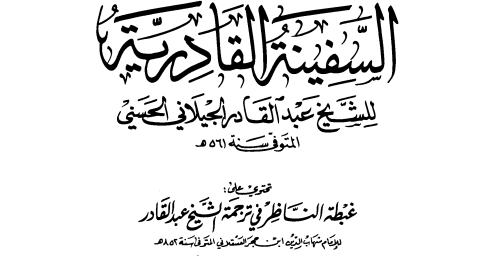 السَّفِينَةُ القَادِرِيَّةُ
للشَّيخ عَبْد القَادر الجيلاني الحَسَنيّ
المتوفى سَنة ٥٦١ هـ
تحتوي على:
غبطة النَّاظر في ترجمة الشَّيخ عبد القادر
للإمام شهاب الدّين ابن حجر العسقلاني المتوفى سنة ٨٥٢ هـ